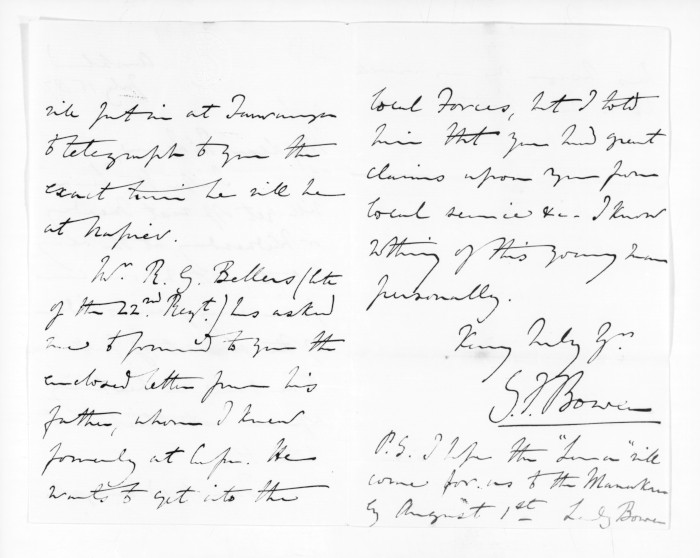 will put in at Tauranga
to telegraph to you the
exact time he will be
at Napier.
Mr. R. G. Bellers (late
of the 22nd. Regt.) has asked
me to forward to you the
enclosed letter from his
father, whom I knew
formerly at He
wants to get into the
local Forces, but I told
him that you had great
claims upon you from
local service &c. I know
nothing of this young man
personally.
Very truly Yrs
G. F. Bowen
P.S. I hope the "Luna" will
come for us to the Manukau
by August 1st Lady Bowen